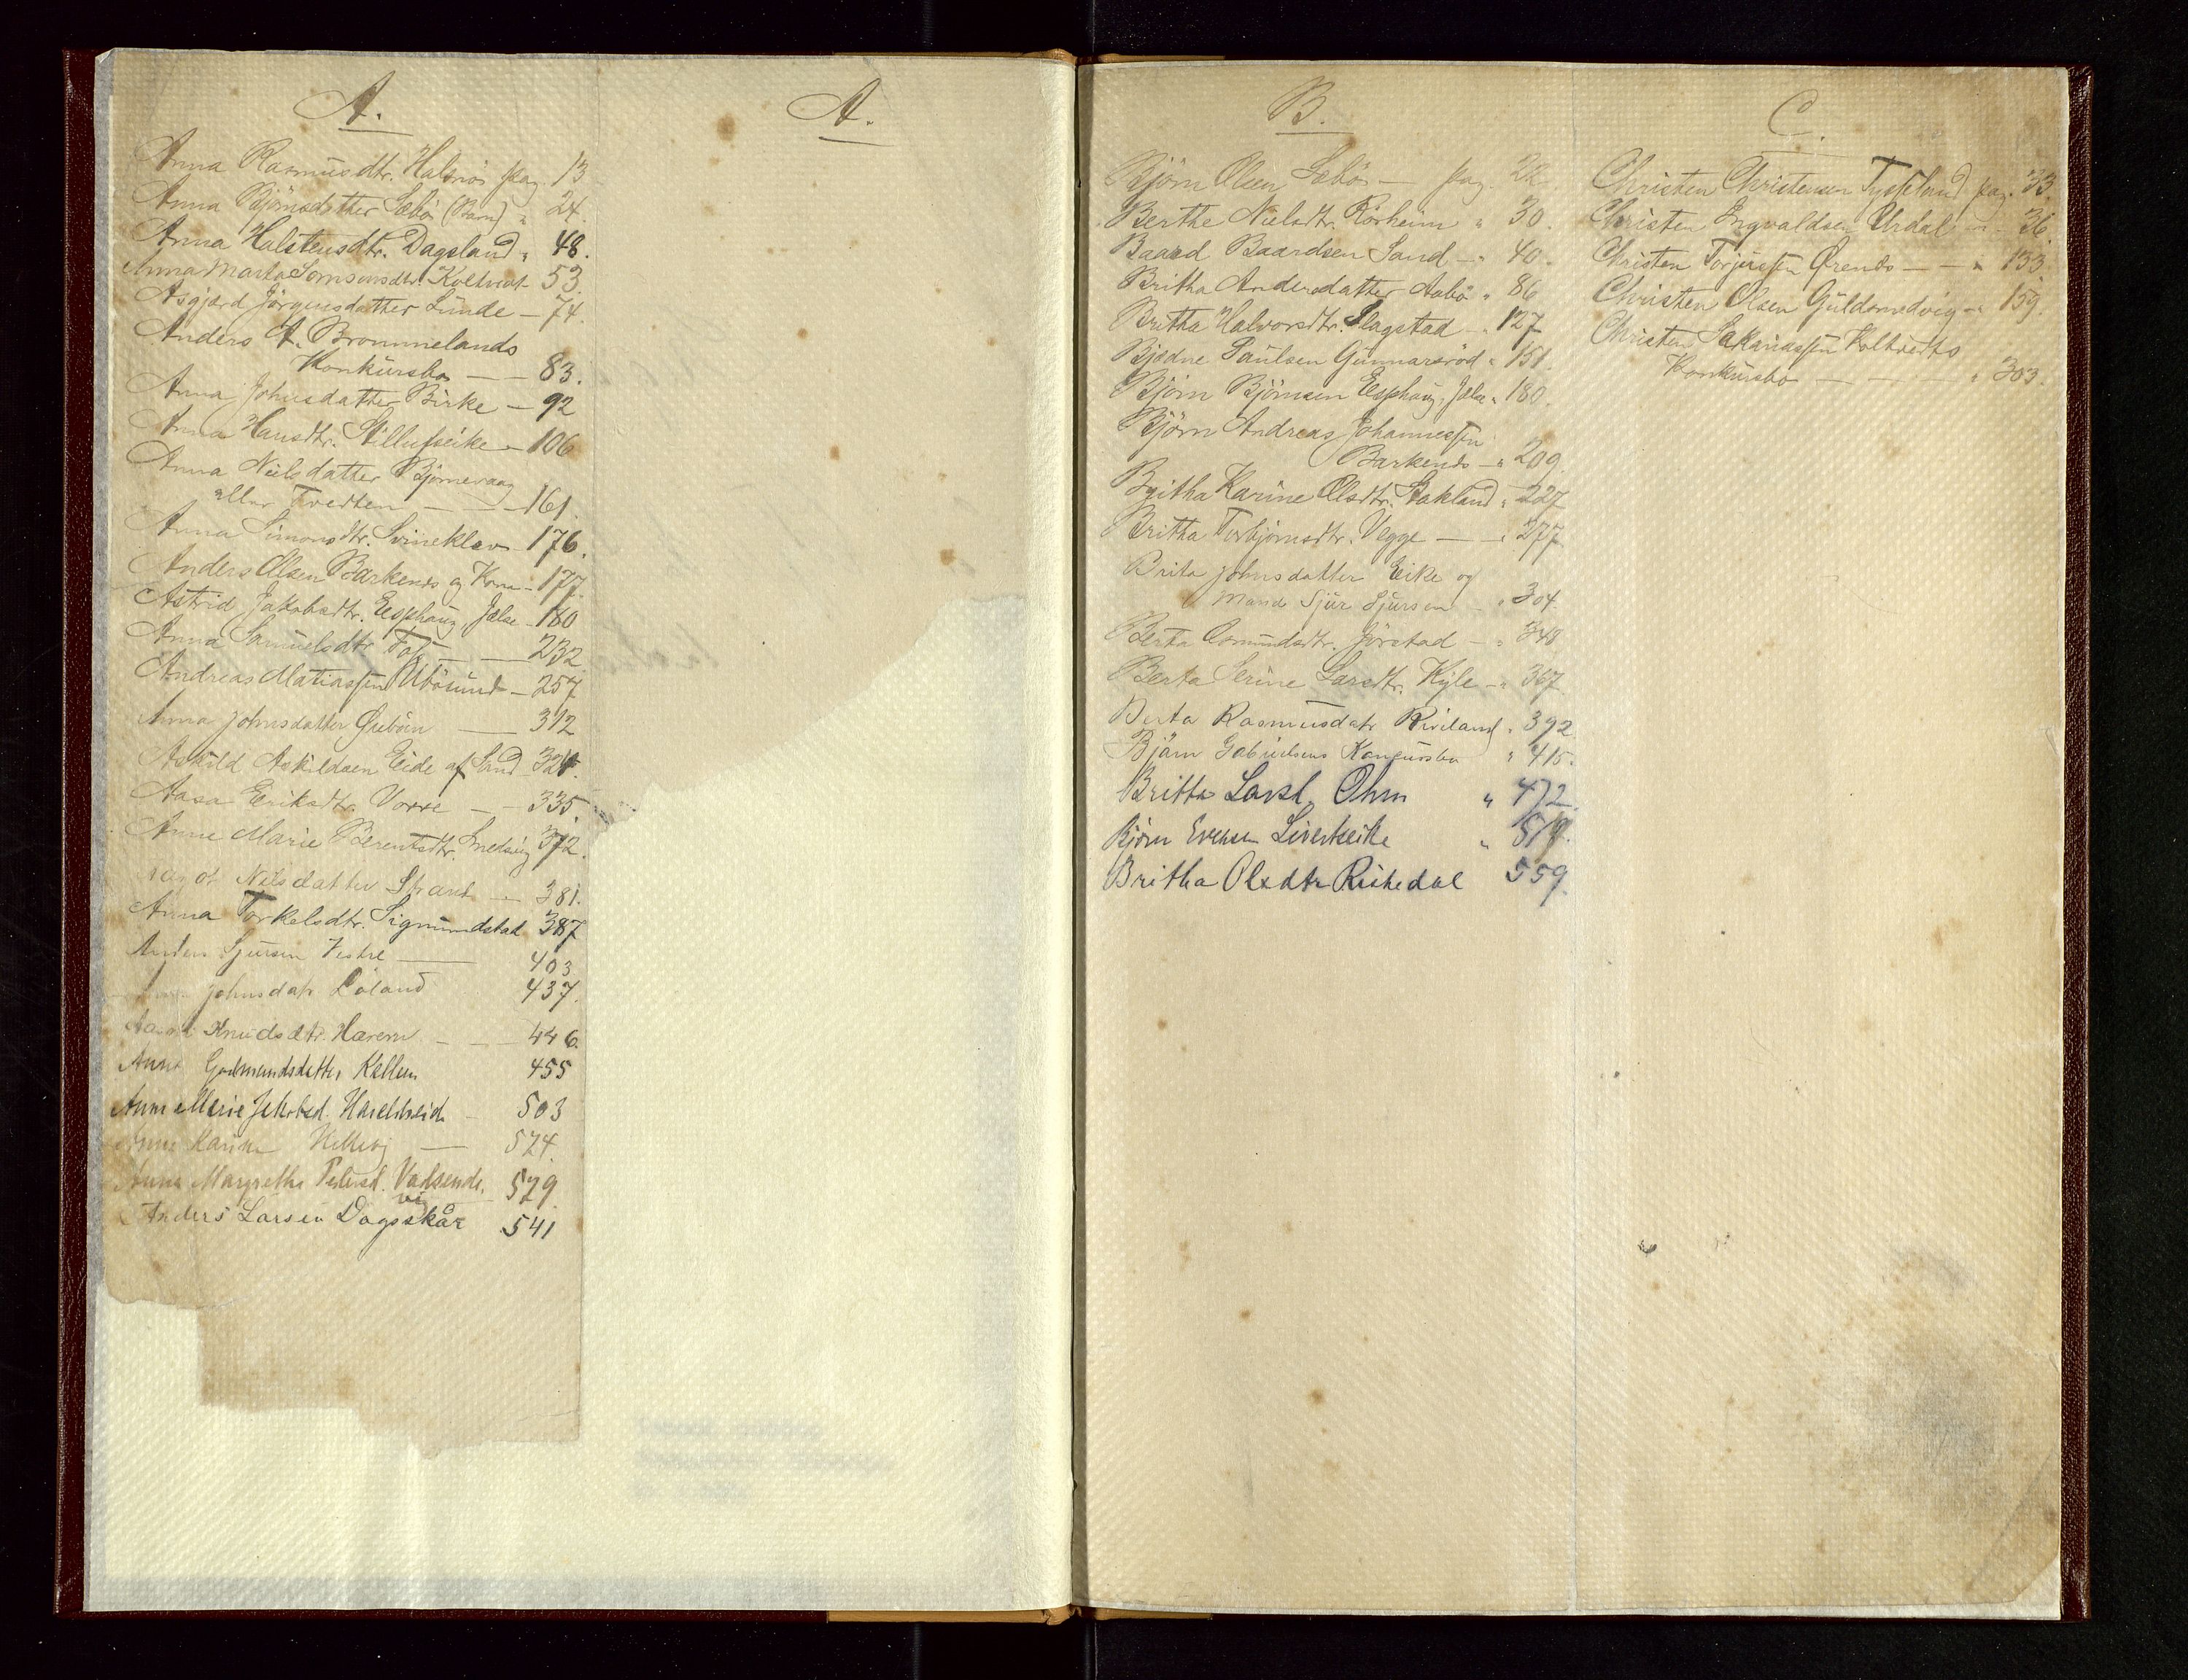 A.
Anna Rasmusdtr. Halsnös pag. 13
Anna Björnsdatter Sæbö (Barn) " 24.
Anna Halstensdtr. Dagsland " 48.
Anna Marta Koltvedt 53.
Asgjærd Jörgensdatter Lunde — 74.
Anders A. Brommelands
Konkursbo — — 83.
Anna Johnsdatter Birke — 92
Anna Hansdtr. — 106
Anna Nielsdatter Björnevaag
eller Tvedten — — 161.
Anna Simonsdtr. Svineklev — 176.
Anders Olsen Barkenæs og Kone — 177.
Astrid Jakobsdtr. Eegshaug, Jelse — 180
Anna Samuelsdtr. — — 232
Andreas Matiassen Ubösund — 257
Anna Johnsdatter Öreböen — 312
Askild Askildsen Eide af Sand 324.
Aasa Eriksdtr. Vorre — — 335.
Anne Marie Berentsdtr. Smedsvig 372.
Nilsdatter Strand — 381.
Anna Torkelsdtr. Sigmundstad 387
Anders Sjursen Vestre — 403
Johnsdatr Löland 437.
Knudsdtr. Hæreim — — 446.
Anna Gudmundsdatter Kallem 455
Anne Marie Jakobsd. — 503
Anne Karine — 524.
Anna Margrethe Pedersd. Vadsende. 529
Anders Larsen Dagsvikskår 541
A.
B.
Björn Olsen Sæbös — pag. 22
Berthe Nielsdtr. Rörheim " 30.
Baard Baardsen Sand — " 40.
Britha Andersdatter Aabö " 86
Britha Halvorsdtr. Slagstad — " 127
Bjedne Paulsen Gunnarsröd " 151.
Björn Björnsen Eegshaug, Jelse " 180.
Björn Andreas Johannessen
Barkenæs — " 209.
Britha Karine Olsdtr. Stakland " 227
Britha Torbjörnsdtr. Vegge — " 277
Brita Johnsdatter Eike og
Mand Sjur Sjursen — " 304.
Berta Osmundsdtr. Jörstad — " 348
Berta Serine Larsdtr. Hyle — " 367.
Berta Rasmusdatr " 392
Björn Gabrielsens Konkursbo " 415.
Britta Larsd. Ohm " 472.
Björn Evensen " 519.
Britha Olsdtr Riskedal 559.
C.
Christen Christensen Tysseland pag. 33.
Christen Ingvaldsen Urdal — " 36.
Christen Torjussen Örenæs — — " 133.
Christen Olsen Guldsmedvig — " 159.
Christen Sakariassen Koltvedts
Konkursbo — — " 303.